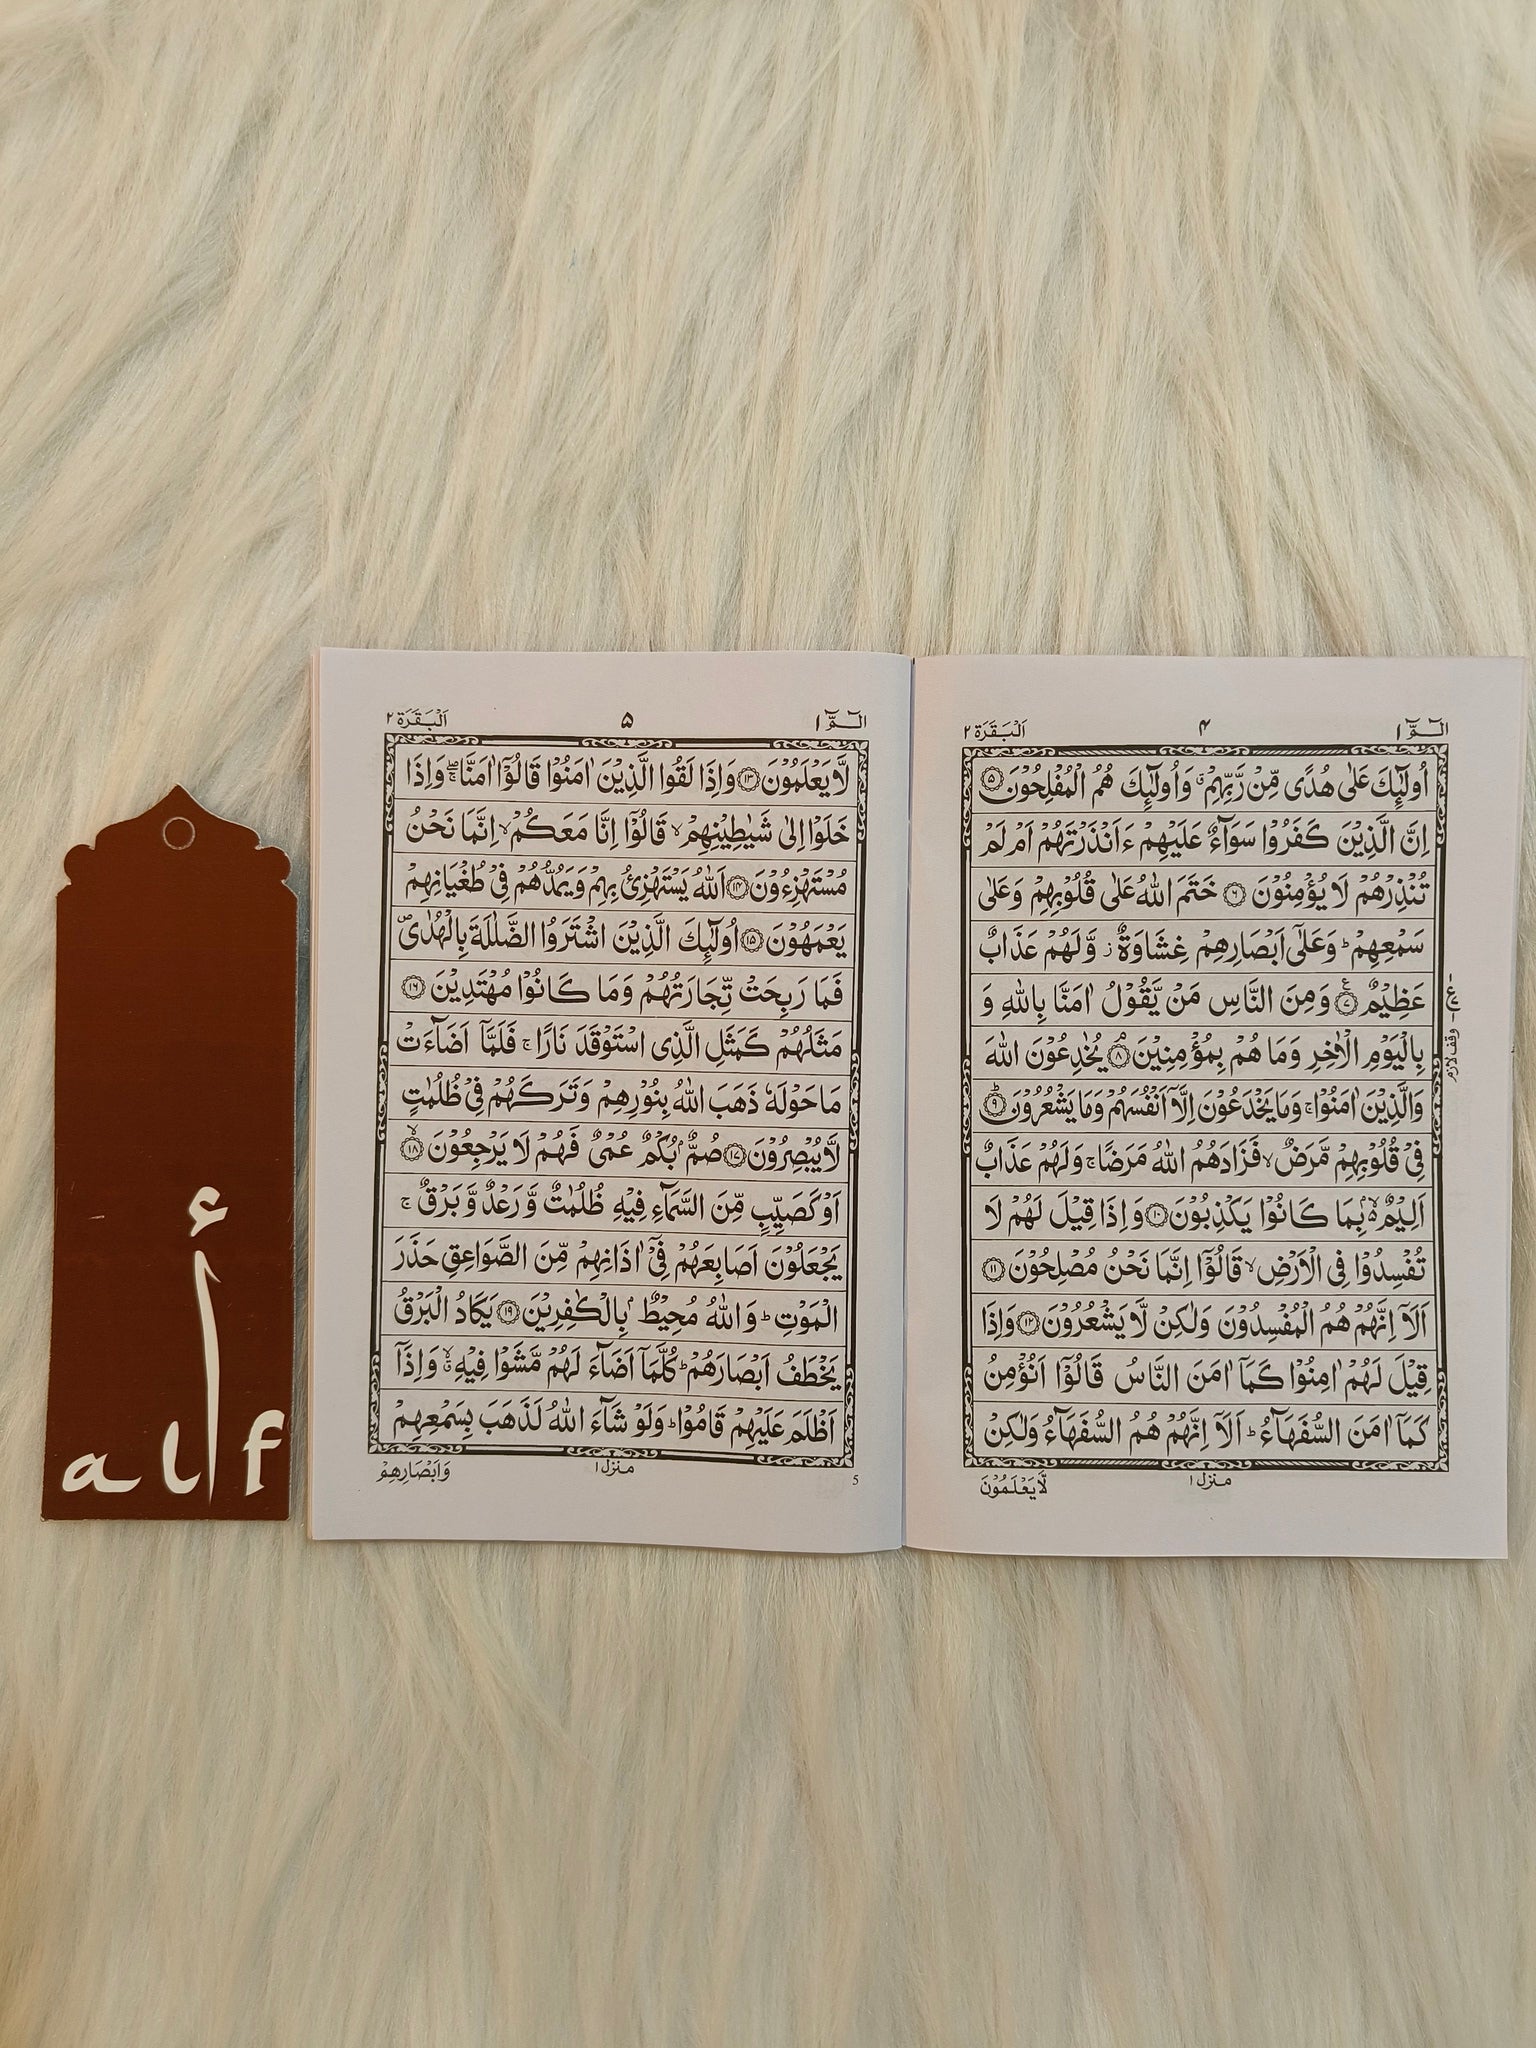 الٓمّٓ ۱
۴
اَلْبَقَرَة ۲
اُولٰٓئِكَ عَلٰى هُدًى مِّنْ رَّبِّهِمْ ۗ وَاُولٰٓئِكَ هُمُ الْمُفْلِحُوْنَ ۵
اِنَّ الَّذِيْنَ كَفَرُوْا سَوَآءٌ عَلَيْهِمْ ءَاَنْذَرْتَهُمْ اَمْ لَمْ
تُنْذِرْهُمْ لَا يُؤْمِنُوْنَ ۶ خَتَمَ اللّٰهُ عَلٰى قُلُوْبِهِمْ وَعَلٰى
سَمْعِهِمْ ؕ وَعَلٰٓى اَبْصَارِهِمْ غِشَاوَةٌ ز وَّلَهُمْ عَذَابٌ
عَظِيْمٌ ۷ ع وَمِنَ النَّاسِ مَنْ يَّقُوْلُ اٰمَنَّا بِاللّٰهِ وَ
بِالْيَوْمِ الْاٰخِرِ وَمَا هُمْ بِمُؤْمِنِيْنَ ۘ ۸ يُخٰدِعُوْنَ اللّٰهَ
وَالَّذِيْنَ اٰمَنُوْا ۚ وَمَا يَخْدَعُوْنَ اِلَّآ اَنْفُسَهُمْ وَمَا يَشْعُرُوْنَ ؕ ۹
فِىْ قُلُوْبِهِمْ مَّرَضٌ ۙ فَزَادَهُمُ اللّٰهُ مَرَضًا ۚ وَلَهُمْ عَذَابٌ
اَلِيْمٌۢ ۙ بِمَا كَانُوْا يَكْذِبُوْنَ ۱۰ وَاِذَا قِيْلَ لَهُمْ لَا
تُفْسِدُوْا فِى الْاَرْضِ ۙ قَالُوْٓا اِنَّمَا نَحْنُ مُصْلِحُوْنَ ۱۱
اَلَآ اِنَّهُمْ هُمُ الْمُفْسِدُوْنَ وَلٰكِنْ لَّا يَشْعُرُوْنَ ۱۲ وَاِذَا
قِيْلَ لَهُمْ اٰمِنُوْا كَمَآ اٰمَنَ النَّاسُ قَالُوْٓا اَنُؤْمِنُ
كَمَآ اٰمَنَ السُّفَهَآءُ ؕ اَلَآ اِنَّهُمْ هُمُ السُّفَهَآءُ وَلٰكِنْ
منزل ۱
لَّا يَعْلَمُوْنَ
وقف لازم
الٓمّٓ ۱
۵
اَلْبَقَرَة ۲
لَّا يَعْلَمُوْنَ ۱۳ وَاِذَا لَقُوا الَّذِيْنَ اٰمَنُوْا قَالُوْٓا اٰمَنَّا ۖۚ وَاِذَا
خَلَوْا اِلٰى شَيٰطِيْنِهِمْ ۙ قَالُوْٓا اِنَّا مَعَكُمْ ۙ اِنَّمَا نَحْنُ
مُسْتَهْزِءُوْنَ ۱۴ اَللّٰهُ يَسْتَهْزِئُ بِهِمْ وَيَمُدُّهُمْ فِىْ طُغْيَانِهِمْ
يَعْمَهُوْنَ ۱۵ اُولٰٓئِكَ الَّذِيْنَ اشْتَرَوُا الضَّلٰلَةَ بِالْهُدٰى ۪
فَمَا رَبِحَتْ تِّجَارَتُهُمْ وَمَا كَانُوْا مُهْتَدِيْنَ ۱۶
مَثَلُهُمْ كَمَثَلِ الَّذِى اسْتَوْقَدَ نَارًا ۚ فَلَمَّآ اَضَآءَتْ
مَا حَوْلَهٗ ذَهَبَ اللّٰهُ بِنُوْرِهِمْ وَتَرَكَهُمْ فِىْ ظُلُمٰتٍ
لَّا يُبْصِرُوْنَ ۱۷ صُمٌّۢ بُكْمٌ عُمْىٌ فَهُمْ لَا يَرْجِعُوْنَ ۙ ۱۸
اَوْ كَصَيِّبٍ مِّنَ السَّمَآءِ فِيْهِ ظُلُمٰتٌ وَّرَعْدٌ وَّبَرْقٌ ۚ
يَجْعَلُوْنَ اَصَابِعَهُمْ فِىْٓ اٰذَانِهِمْ مِّنَ الصَّوَاعِقِ حَذَرَ
الْمَوْتِ ؕ وَاللّٰهُ مُحِيْطٌۢ بِالْكٰفِرِيْنَ ۱۹ يَكَادُ الْبَرْقُ
يَخْطَفُ اَبْصَارَهُمْ ؕ كُلَّمَآ اَضَآءَ لَهُمْ مَّشَوْا فِيْهِ ۙ وَاِذَآ
اَظْلَمَ عَلَيْهِمْ قَامُوْا ؕ وَلَوْ شَآءَ اللّٰهُ لَذَهَبَ بِسَمْعِهِمْ
منزل ۱
وَاَبْصَارِهِمْ
5
أ
alf